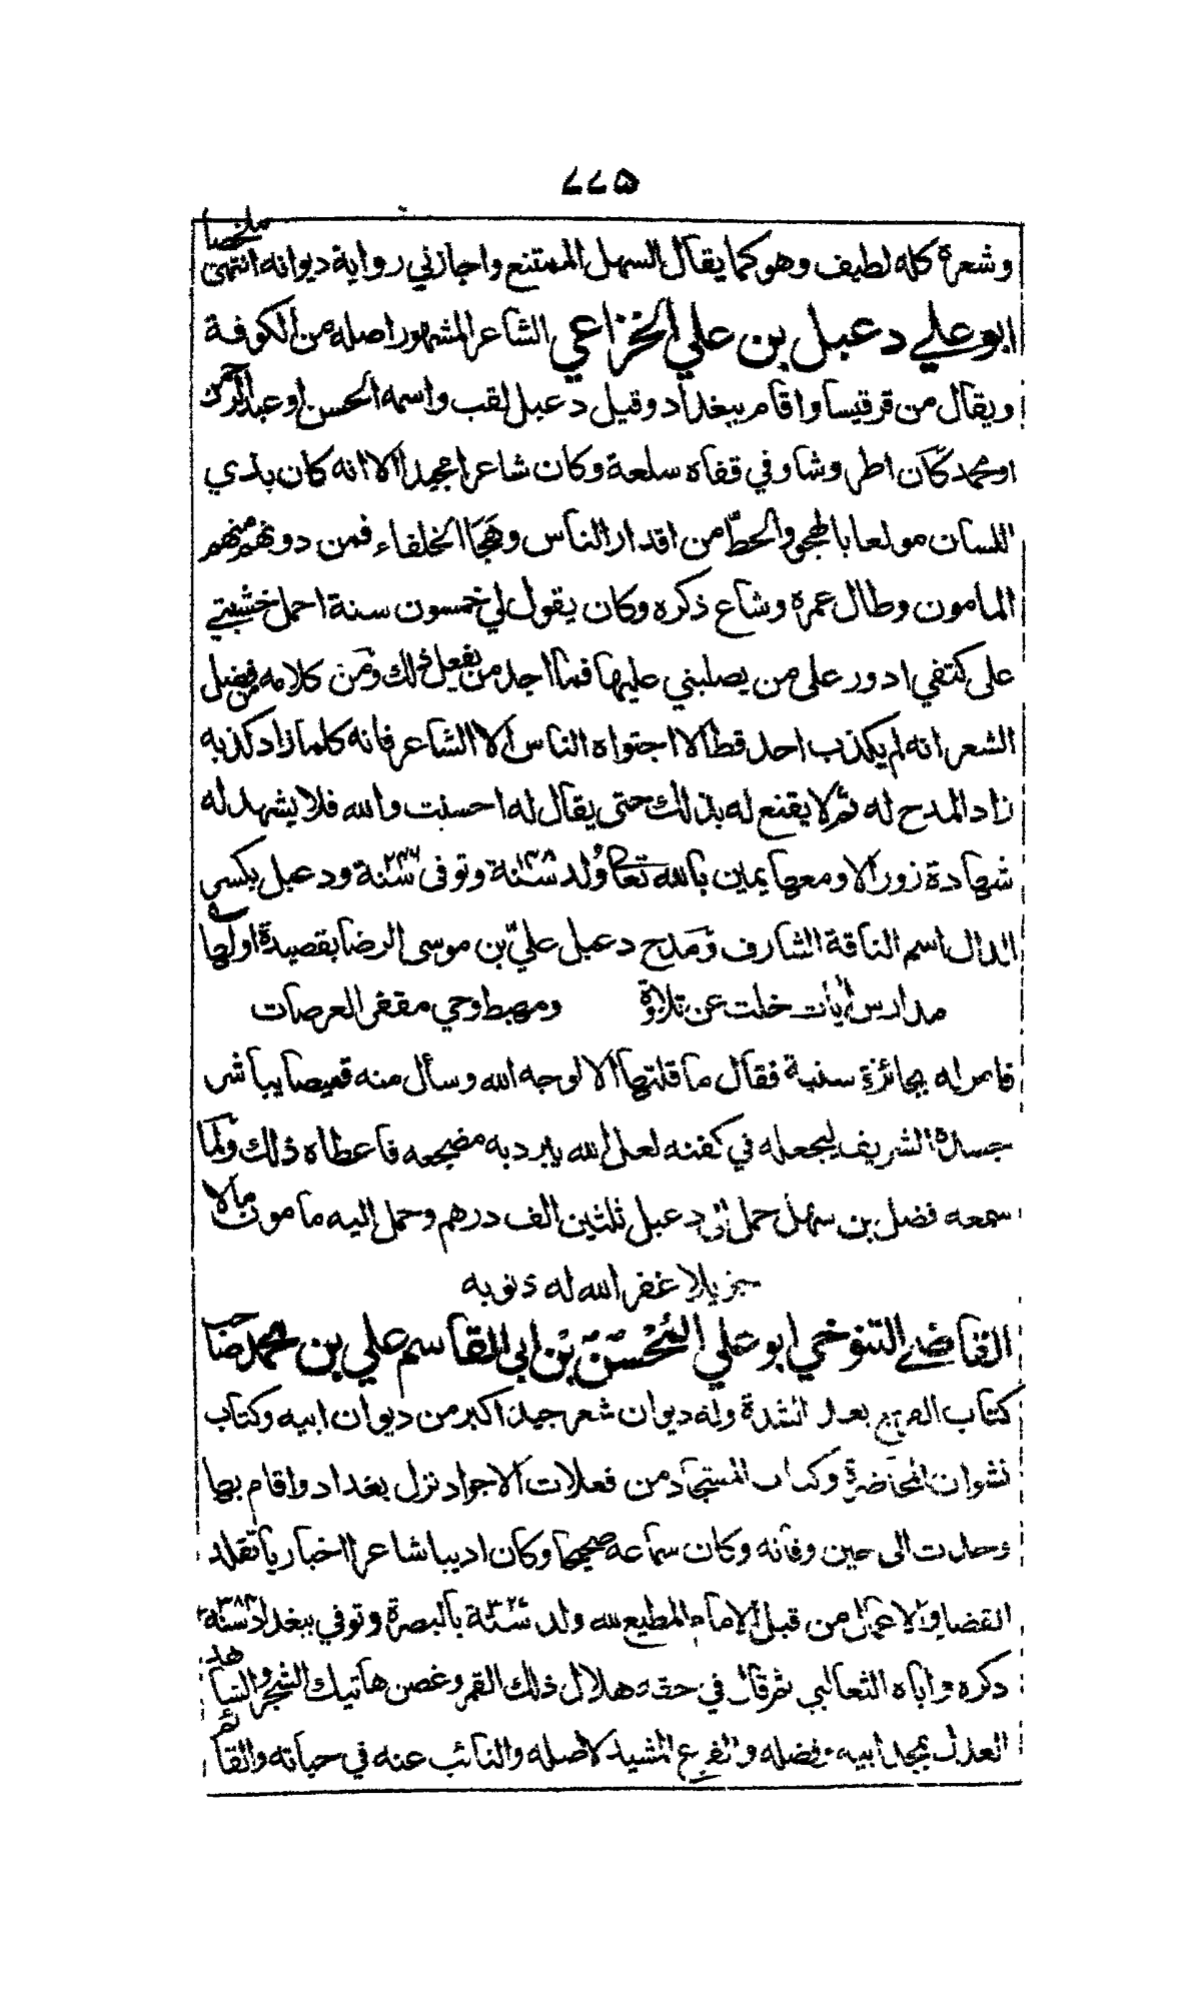 ٧٧٥
وشعره كله لطيف وهو كما يقال السهل الممتنع واجازني رواية ديوانه انتهى ملخصا
ابو علي دعبل بن علي الخزاعي الشاعر المشهور اصله من الكوفة
ويقال من قرقيسا واقام ببغداد وقيل دعبل لقب واسمه الحسن او عبد الرحمن
او محمد كان اطروشا وفي قفاه سلعة وكان شاعرا مجيدا الا انه كان بذي
اللسان مولعا بالهجو والحطّ من اقدار الناس وهَجَا الخلفاء فمن دونهم منهم
المامون وطال عمره وشاع ذكره وكان يقول لي خمسون سنة احمل خشبتي
على كتفي ادور على من يصلبني عليها فما اجد من يفعل ذلك ومن كلامه من فضل
الشعر انه لم يكذب احد قط الا اجتواه الناس الا الشاعر فانه كلما زاد كذبه
زاد المدح له ثم لا يقنع له بذلك حتى يقال له احسنت والله فلا يشهد له
شهادة زور الا ومعها يمين بالله تعالى وُلد سنة ١٤٨ وتوفى سنة ٢٤٦ ودعبل بكسر
الدال اسم الناقة الشارف ومدح دعبل عليّ بن موسى الرضا بقصيدة اولها
مدارس آيات خلت عن تلاوة ومهبط وحي مقفر العرصات
فامر له بجائزة سنية فقال ما قلتها الا لوجه الله وسأل منه قميصا يباشر
جسده الشريف ليجعله في كفنه لعل الله يبرد به مضجعه فاعطاه ذلك ولما
سمعه فضل بن سهل حمل الى دعبل ثلثين الف درهم وحمل اليه مامون مالا
جزيلا غفر الله له ذنوبه
القاضي التنوخي ابو علي المُحْسن بن ابى القاسم علي بن محمد صاحب
كتاب الفرج بعد الشدة وله ديوان شعر جيد اكبر من ديوان ابيه وكتاب
نشوان المحاضرة وكتاب المستجاد من فعلات الاجواد نزل بغداد واقام بها
وحدث الى حين وفاته وكان سماعه صحيحا وكان اديبا شاعرا اخباريا تقلد
القضا والاعمال من قبل الامام المطيع لله ولد سنة ٣٢٧ بالبصرة وتوفي ببغداد سنة ٣٨٤
ذكره واباه الثعالبي ثم قال في حقه هلال ذلك القمر وغصن هاتيك الشجر والشاهد
العدل بمجد ابيه وفضله والفرع المشيد لاصله والنائب عنه في حياته والقائم